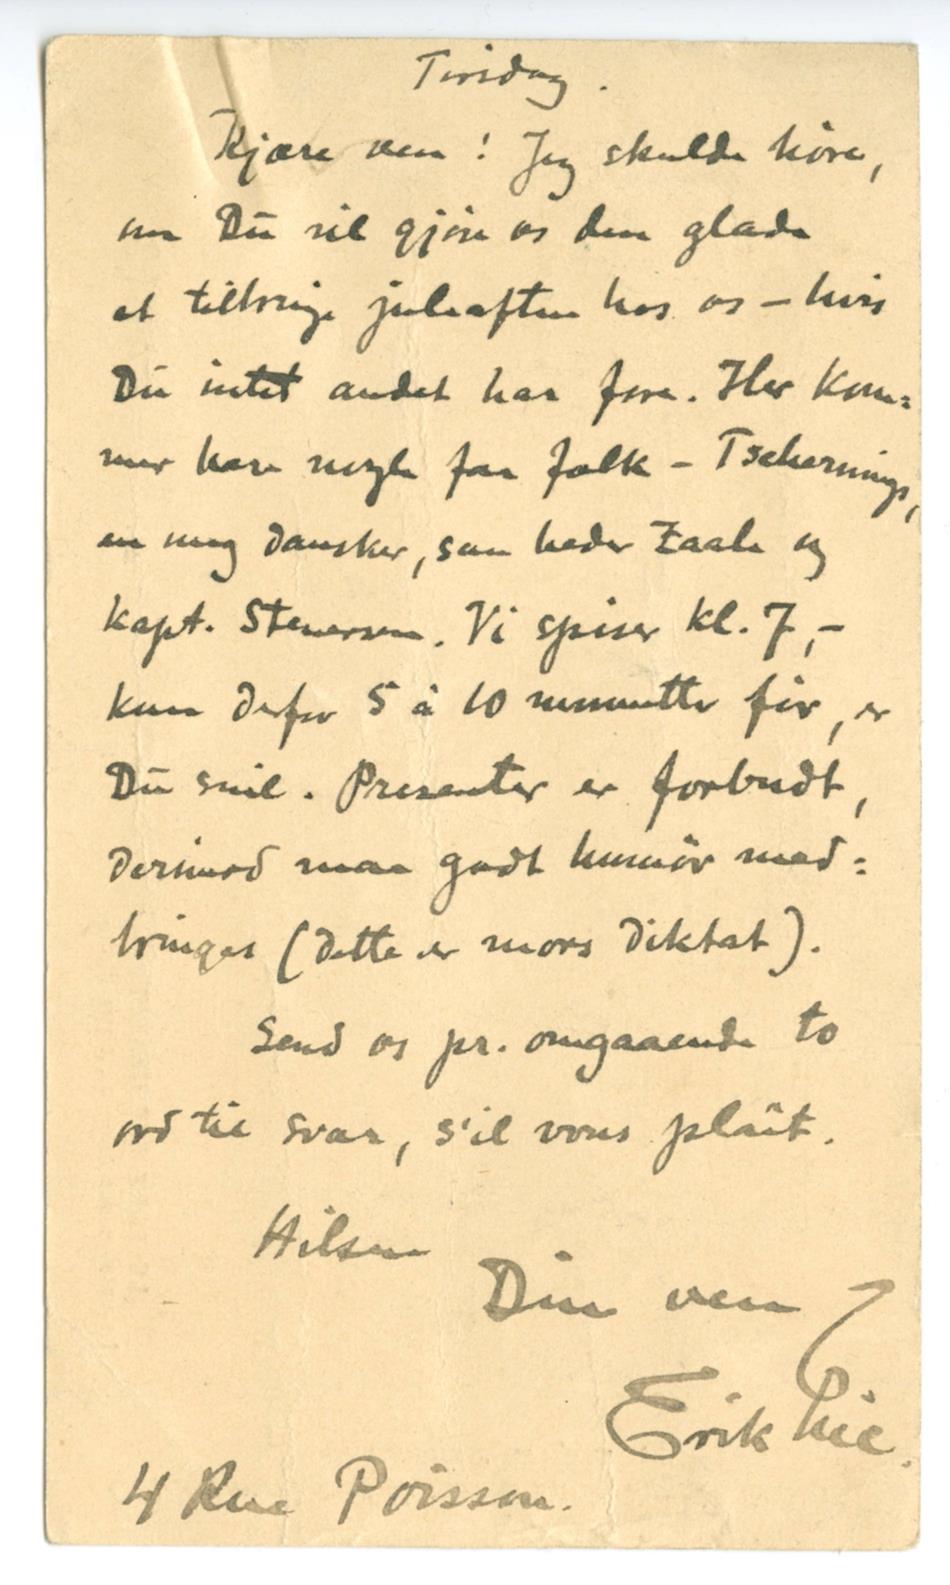 Tirsdag.
Kjære ven! Jeg skulde höre,
om Du vil gjöre os den glæde
at tilbringe juleaften hos os – hvis
Du intet andet har fore. Her kom=
mer bare nogle faa folk – Tschernings,
en ung dansker, som heder Zaale og
kapt. Stenersen. Vi spiser kl. 7, –
kom derfor 5 à 10 minutter för, er
Du snil. Presenter er forbudt,
derimod maa godt humör med=
bringes (dette er mors diktat).
Send os pr. omgaaende to
ord til svar, s'il vous plaît.
Hilsen
Din ven
Erik Lie.
4 Rue Poisson.